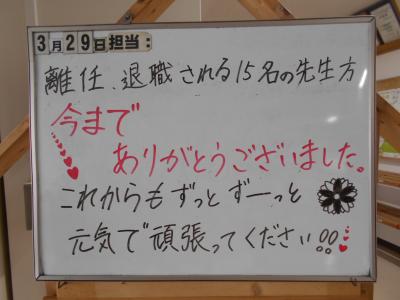 3月29日担当:
離任、退職される15名の先生方
今まで
ありがとうございました。
これからもずっとずーっと
元気で頑張ってください!!